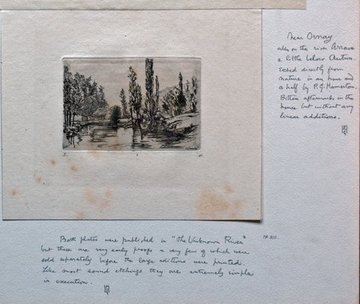 Near Ornay
also on the river Arroux
a little below Autun.
Etched directly from
nature in an hour and
a half by P. G. Hamerton.
Bitten afterwards in the
house but without any
linear additions.
Both plates were published in "the Unknown River"
but these are very early proofs a very few of which were
sold separately before the large editions were printed.
Like most sound etchings they are extremely simple
in execution.